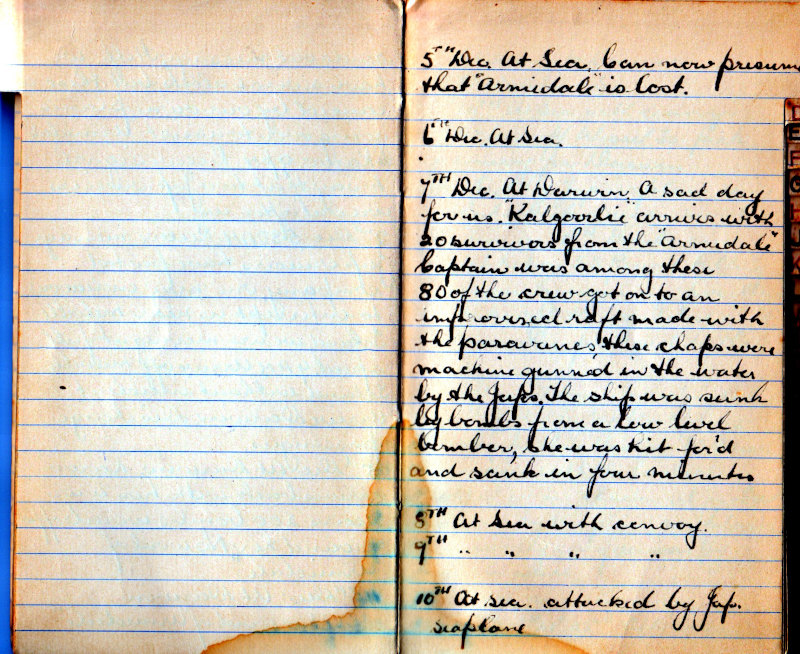 5TH Dec. At Sea, Can now presume
that "Armidale" is lost.
6TH Dec. At Sea.
7TH Dec. At Darwin. A sad day
for us. "Kalgoorlie" arrives with
20 survivors from the "Armidale"
Captain was among these
80 of the crew got on to an
improvised raft made with
the paravanes, these chaps were
machine gunned in the water
by the Japs. The ship was sunk
by bombs from a low level
bomber, she was hit for'd
and sank in four minutes
8TH At Sea with convoy.
9TH " " " "
10TH At sea. attacked by Jap.
seaplane